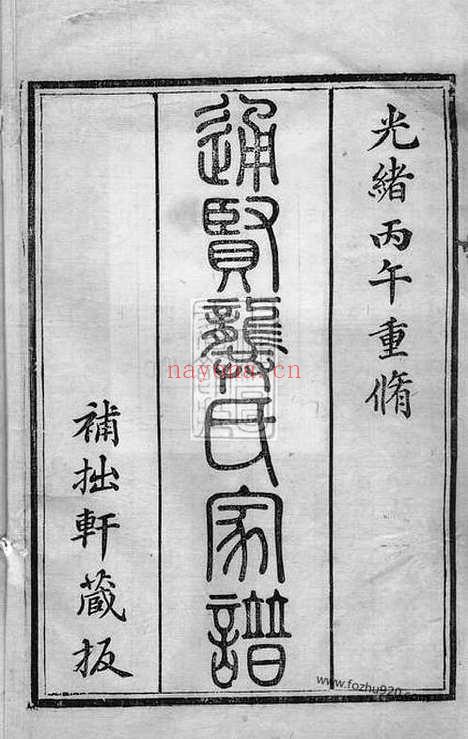 光緒丙午重脩
通賢龔氏家譜
補拙軒藏板
nayona.cn
www.fozhu920.com